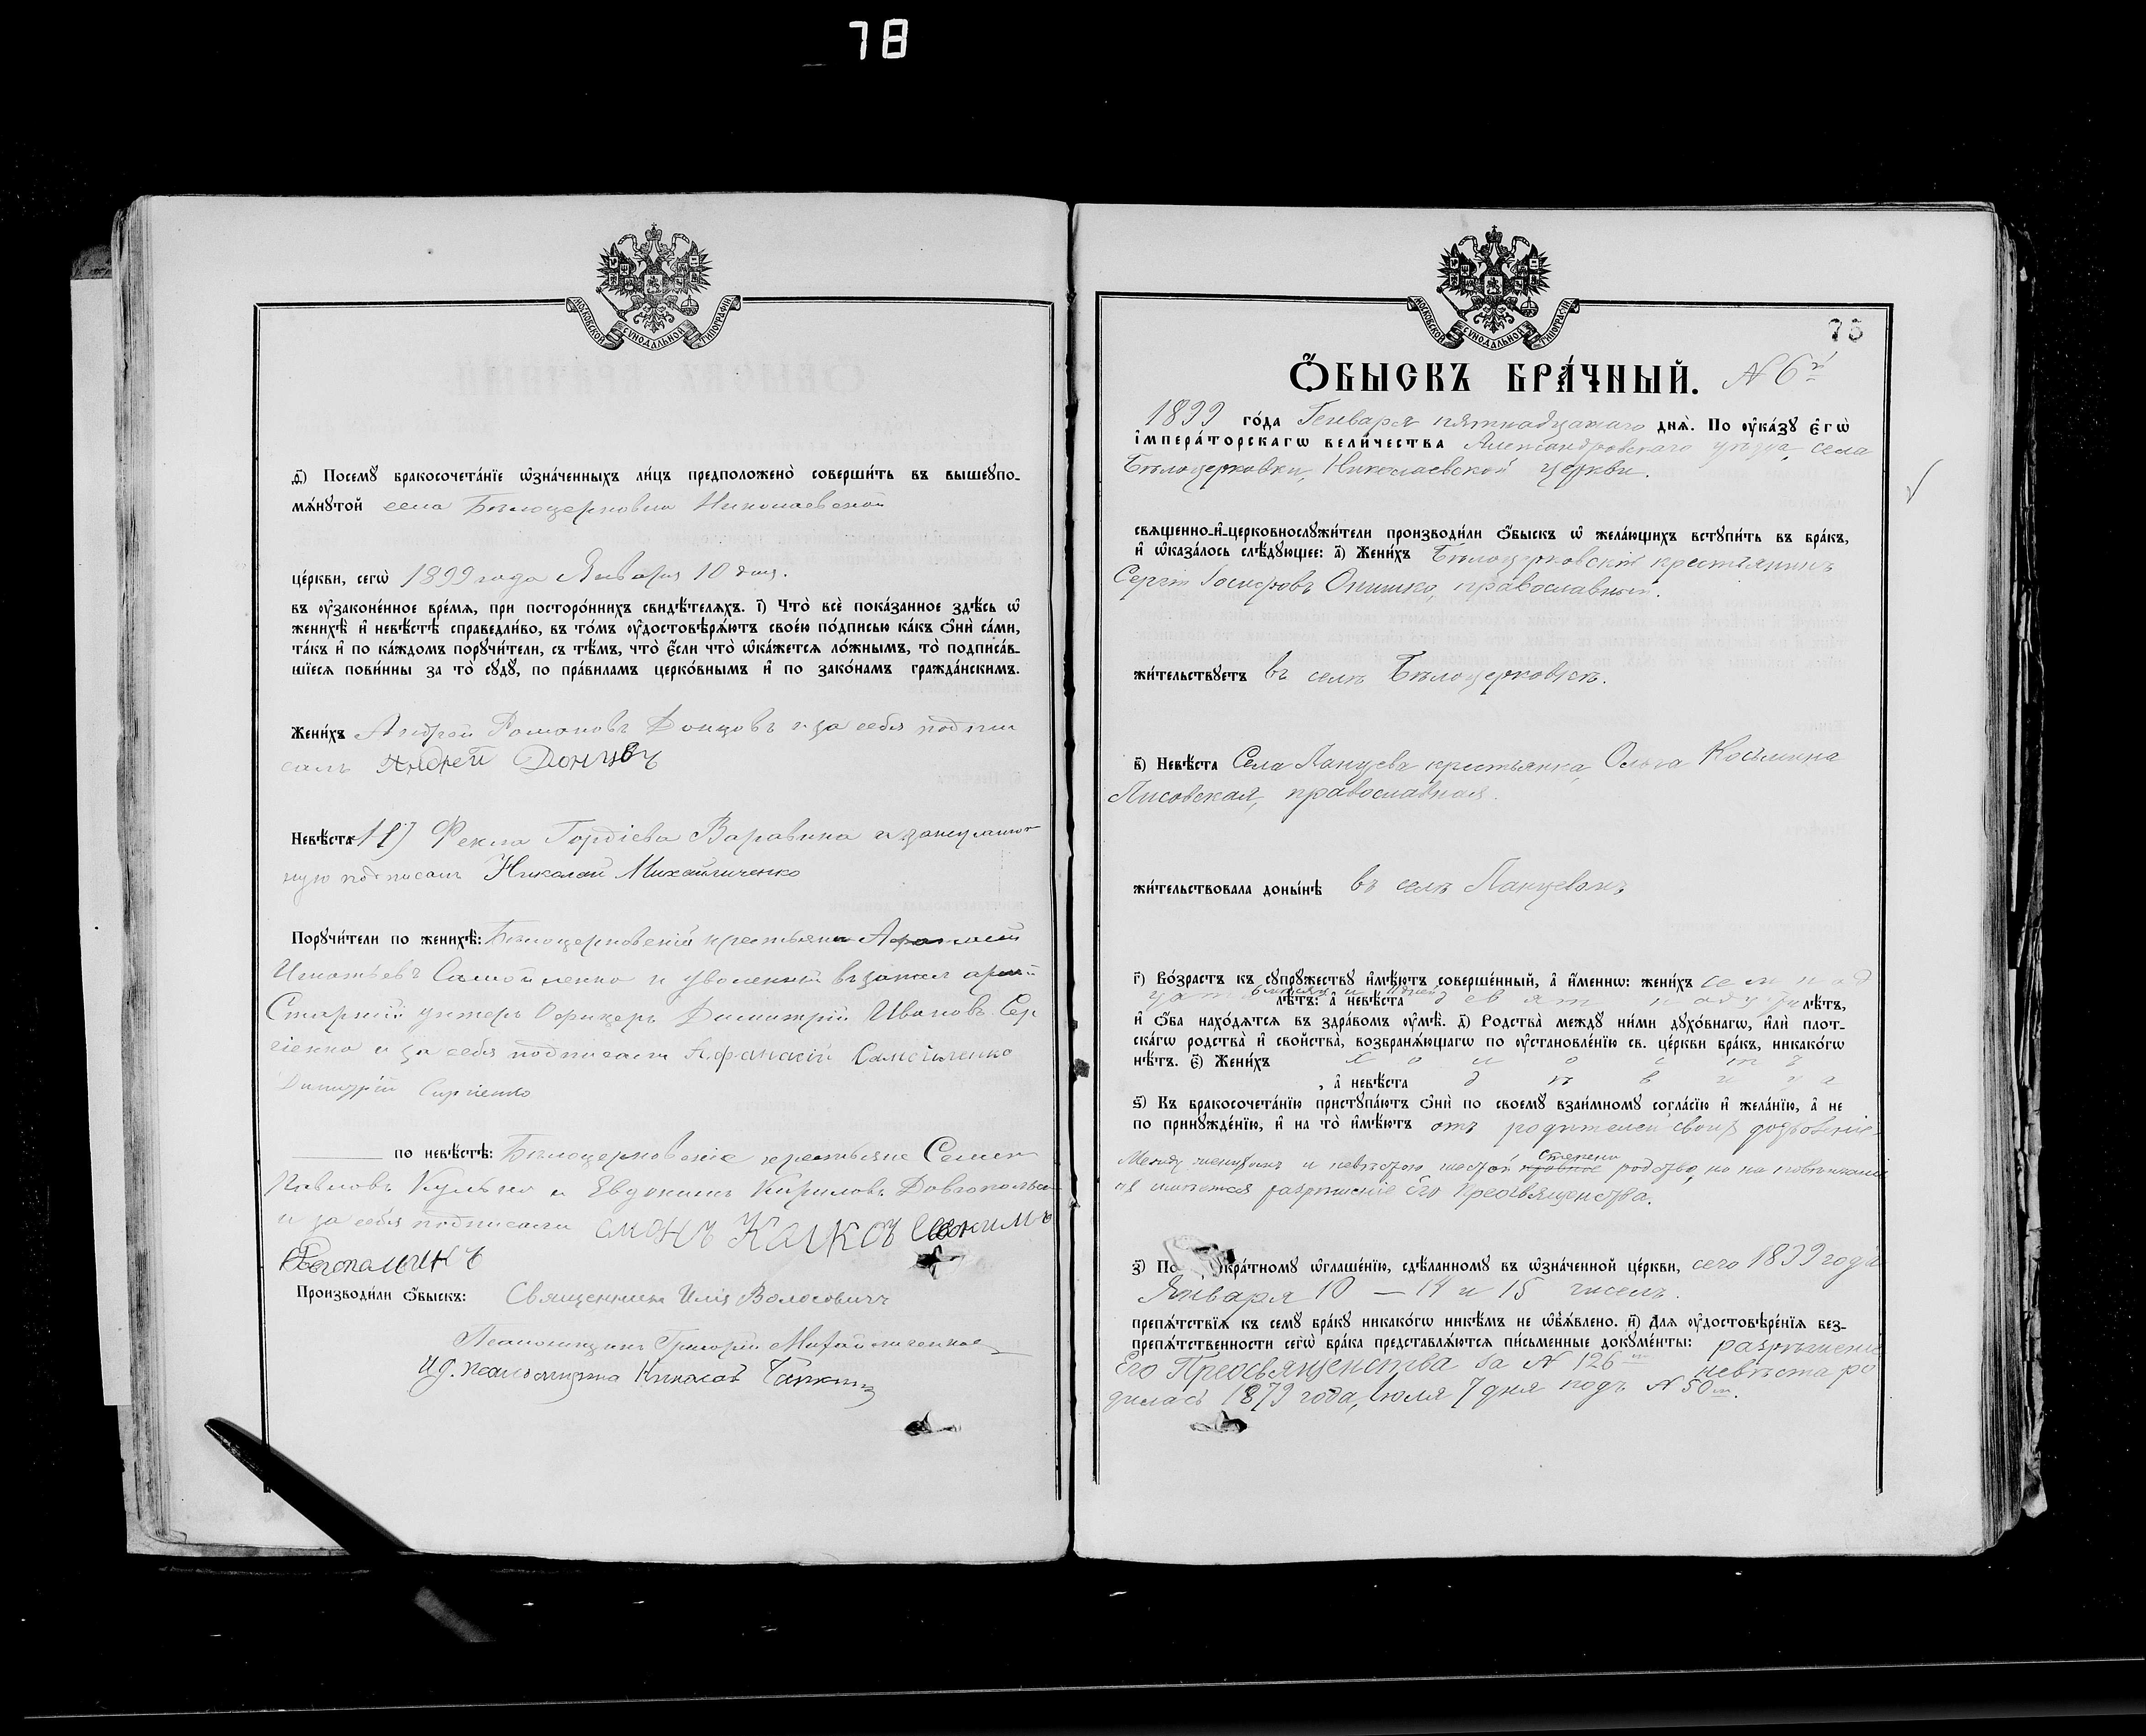 78
МОСКОВСКОЙ СѴНОДАЛЬНОЙ ТИПОГРАФІИ
д҃) Посемꙋ бракосочета́нїе ѡ҆зна́ченныхъ ли́цъ предположено̀ соверши́ть въ вышеꙋпо-
мѧ́нꙋтой села Бѣлоцерковки Николаевской
це́ркви, сегѡ̀ 1899 года Января 10 дня.
въ ᲂу҆законе́нное вре́мѧ, при посторо́ннихъ свидѣ́телѧхъ. і҃) Что̀ всѐ пока́занное здѣ́сь ѡ҆
женихѣ̀ и҆ невѣ́стѣ справедли́во, въ то́мъ ᲂу҆достовѣрѧ́ютъ свое́ю по́дписью ка́къ ѻ҆нѝ са́ми,
та́къ и҆ по ка́ждомъ порꙋчи́тели, съ тѣ́мъ, что̀ є҆́сли что̀ ѡ҆ка́жется ло́жнымъ, то̀ подписа́в-
шїеся пови́нны за то̀ сꙋдꙋ̀, по пра́виламъ церко́внымъ и҆ по зако́намъ гражда́нскимъ.
Жени́хъ Андрей Романовъ Донцовъ и за себя подпи
салъ Андрей Донцовъ
Невѣ́ста Фекла Гордіева Варавина
ную подписалъ Николай Михайличенко
Порꙋчи́тели по женихѣ̀: Бѣлоцерковскій крестьянин Афанасій
Игнатьевъ Самойленко и уволенный въ запас арміи
Старшій унтеръ Офицеръ Димитрій Ивановъ Сер
гіенко и за себя подписали Афанасій Самойленко
Димитрій Сиргіенко
по невѣ́стѣ: Бѣлоцерковскіе крестьяне Семен
Павловъ Кулько и Евдокимъ Кириловъ
и за себя подписали
Производи́ли ѻ҆́быскъ: Священникъ Илія Волосовичъ
Псаломщикъ Григорій Михайличенко
И. д. псаломщика Николай
МОСКОВСКОЙ СѴНОДАЛЬНОЙ ТИПОГРАФІИ
75
Ѻ҆́БЫСКЪ БРА́ЧНЫЙ. N 6й
1899 го́да Генваря пятнадцатаго днѧ̀. По ᲂу҆ка́зꙋ є҆гѡ̀
и҆мпера́торскагѡ вели́чества Александровскаго уѣзда, села
Бѣлоцерковки, Николаевской церкви.
свѧще́нно-и҆-церковнослꙋжи́тели производи́ли ѻ҆́быскъ ѡ҆ жела́ющихъ встꙋпи́ть въ бра́къ,
и҆ ѡ҆каза́лось слѣ́дꙋющее: а҃) Жени́хъ Бѣлоцерковскій крестьянинъ
Сергій Іосифовъ Онишко, православный.
жи́тельствꙋетъ въ селѣ Бѣлоцерковкѣ.
в҃) Невѣ́ста Села Ланцева крестьянка, Ольга Косьмина
Лисовская, православная.
жи́тельствовала доны́нѣ въ селѣ Ланцевомъ
г҃) Во́зрастъ къ сꙋпрꙋ́жествꙋ и҆мѣ́ютъ соверше́нный, а҆ и҆́меннѡ: жени́хъ семнад
лѣ́тъ: а҆ невѣ́ста девятнадцати лѣ́тъ,
и҆ ѻ҆́ба нахо́дятся въ здра́вомъ ᲂу҆мѣ̀. д҃) Родства̀ междꙋ ни́ми дꙋхо́внагѡ, и҆лѝ плот-
ска́гѡ родства̀ и҆ сво́йства̀, возбранѧ́ющагѡ по ᲂу҆становле́нїю св. це́ркви бра́къ, никако́гѡ
нѣ́тъ. є҃) Жени́хъ холостъ
, а҆ невѣ́ста дѣвица
ѕ҃) Къ бракосочета́нїю пристꙋпа́ютъ ѻ҆нѝ по своемꙋ̀ взаи́мномꙋ согла́сїю и҆ жела́нїю, а҆ не
по принꙋжде́нїю, и҆ на то̀ и҆мѣ́ютъ отъ родителей своихъ дозволеніе.
Между женихомъ и невѣстою шестой степени родство, но на повѣнчаніе
ихъ имѣется разрѣшеніе Его Преосвященства.
з҃) По кра́тномꙋ ѡ҆глаше́нїю, сдѣ́ланномꙋ въ ѡ҆зна́ченной це́ркви, сего 1899 года
Января 10 — 14 и 15 чиселъ.
препѧ́тствїѧ къ семꙋ̀ бра́кꙋ никако́гѡ никѣ́мъ не ѡ҆б̾ѧ́влено. и҃) Для ᲂу҆достовѣре́нїѧ без-
препѧ́тственности сегѡ̀ бра́ка представлѧ́ются пи́сьменные докꙋме́нты: разрѣшеніе
Его Преосвященства за N 126 невѣста ро
дилась 1879 года, Іюля 7 дня подъ N 50м.